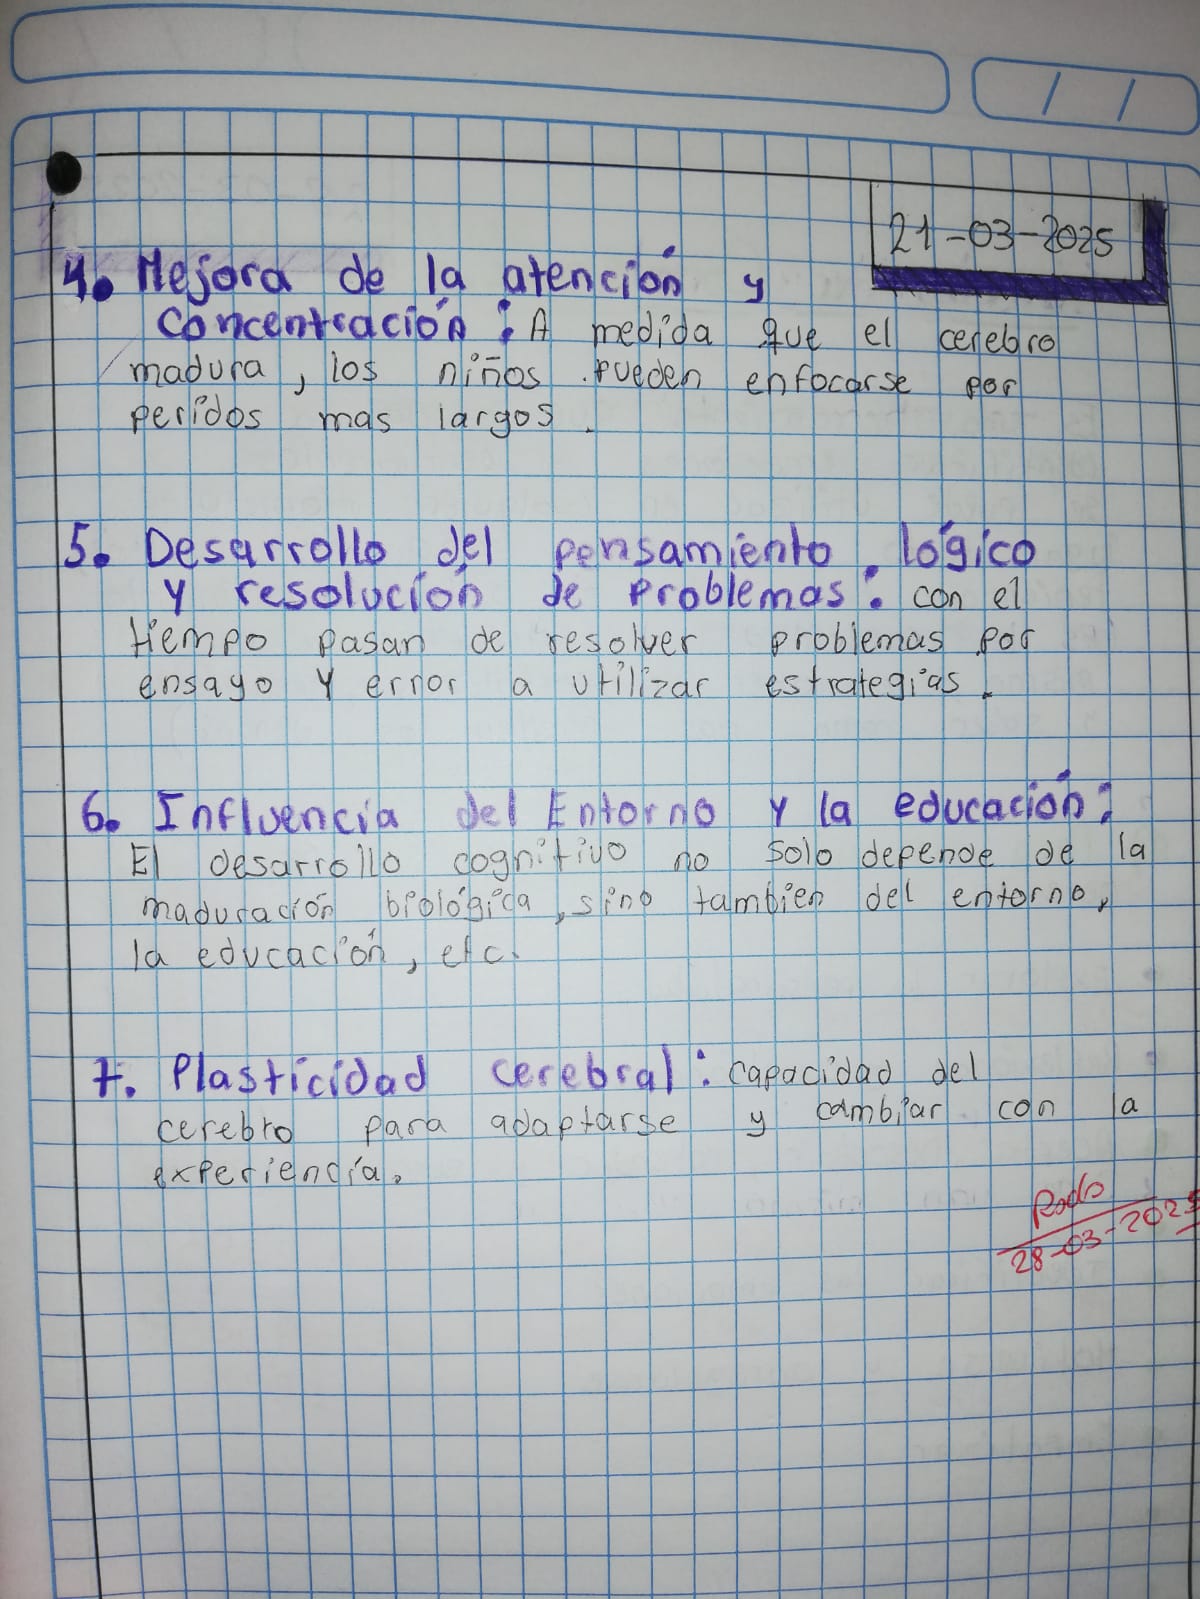 21-03-2025
4. Mejora de la atención y
concentración: A medida que el cerebro
madura, los niños pueden enfocarse por
peridos mas largos.
5. Desarrollo del pensamiento lógico
y resolución de problemas: con el
tiempo pasan de resolver problemas por
ensayo y error a utilizar estrategias.
6. Influencia del Entorno y la educación:
El desarrollo cognitivo no solo depende de la
maduración biológica, sino tambien del entorno,
la educación, etc.
7. Plasticidad cerebral: capacidad del
cerebro para adaptarse y cambiar con la
experiencia.
28-03-2025